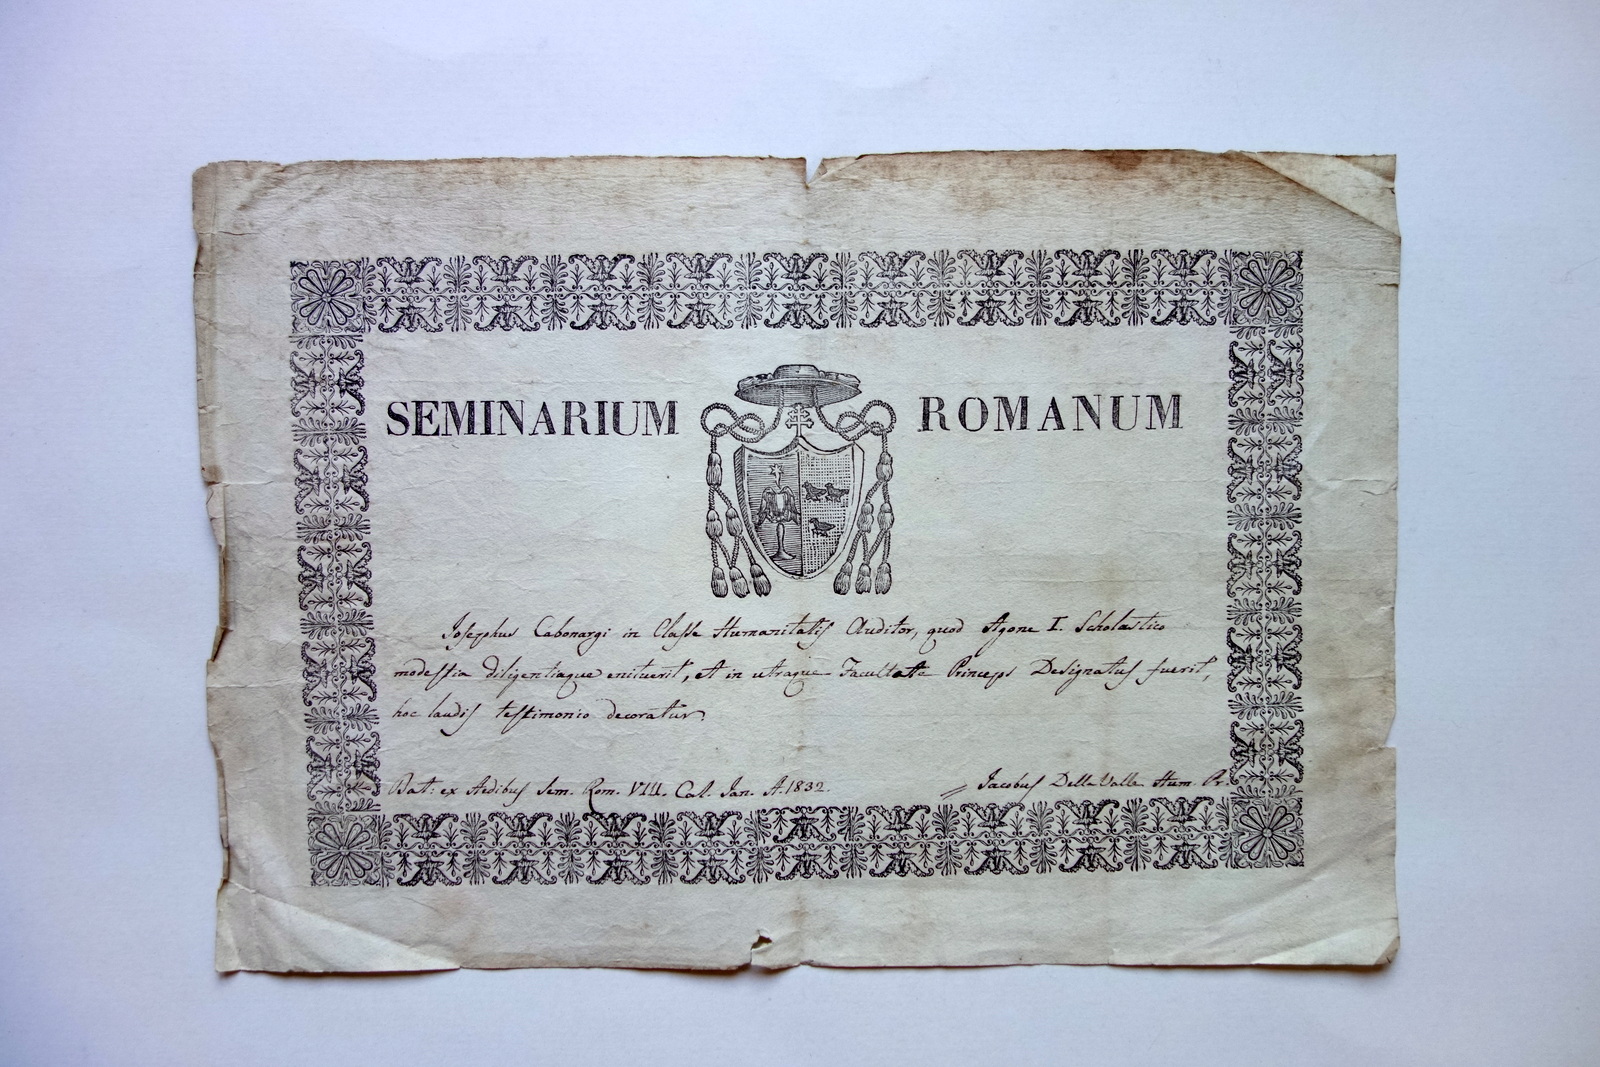 SEMINARIUM ROMANUM
Josephus Cabonargi in Classe Humanitatis Auditor, quod Agone I. Scholastico
modestia diligentiaque enituerit, et in utraque Facultate Princeps Designatus fuerit,
hoc laudis testimonio decoratur.
Dat: ex Aedibus Sem. Rom. VIII. Cal. Jan. A. 1832.
Jacobus Della Valle Hum. Pr.